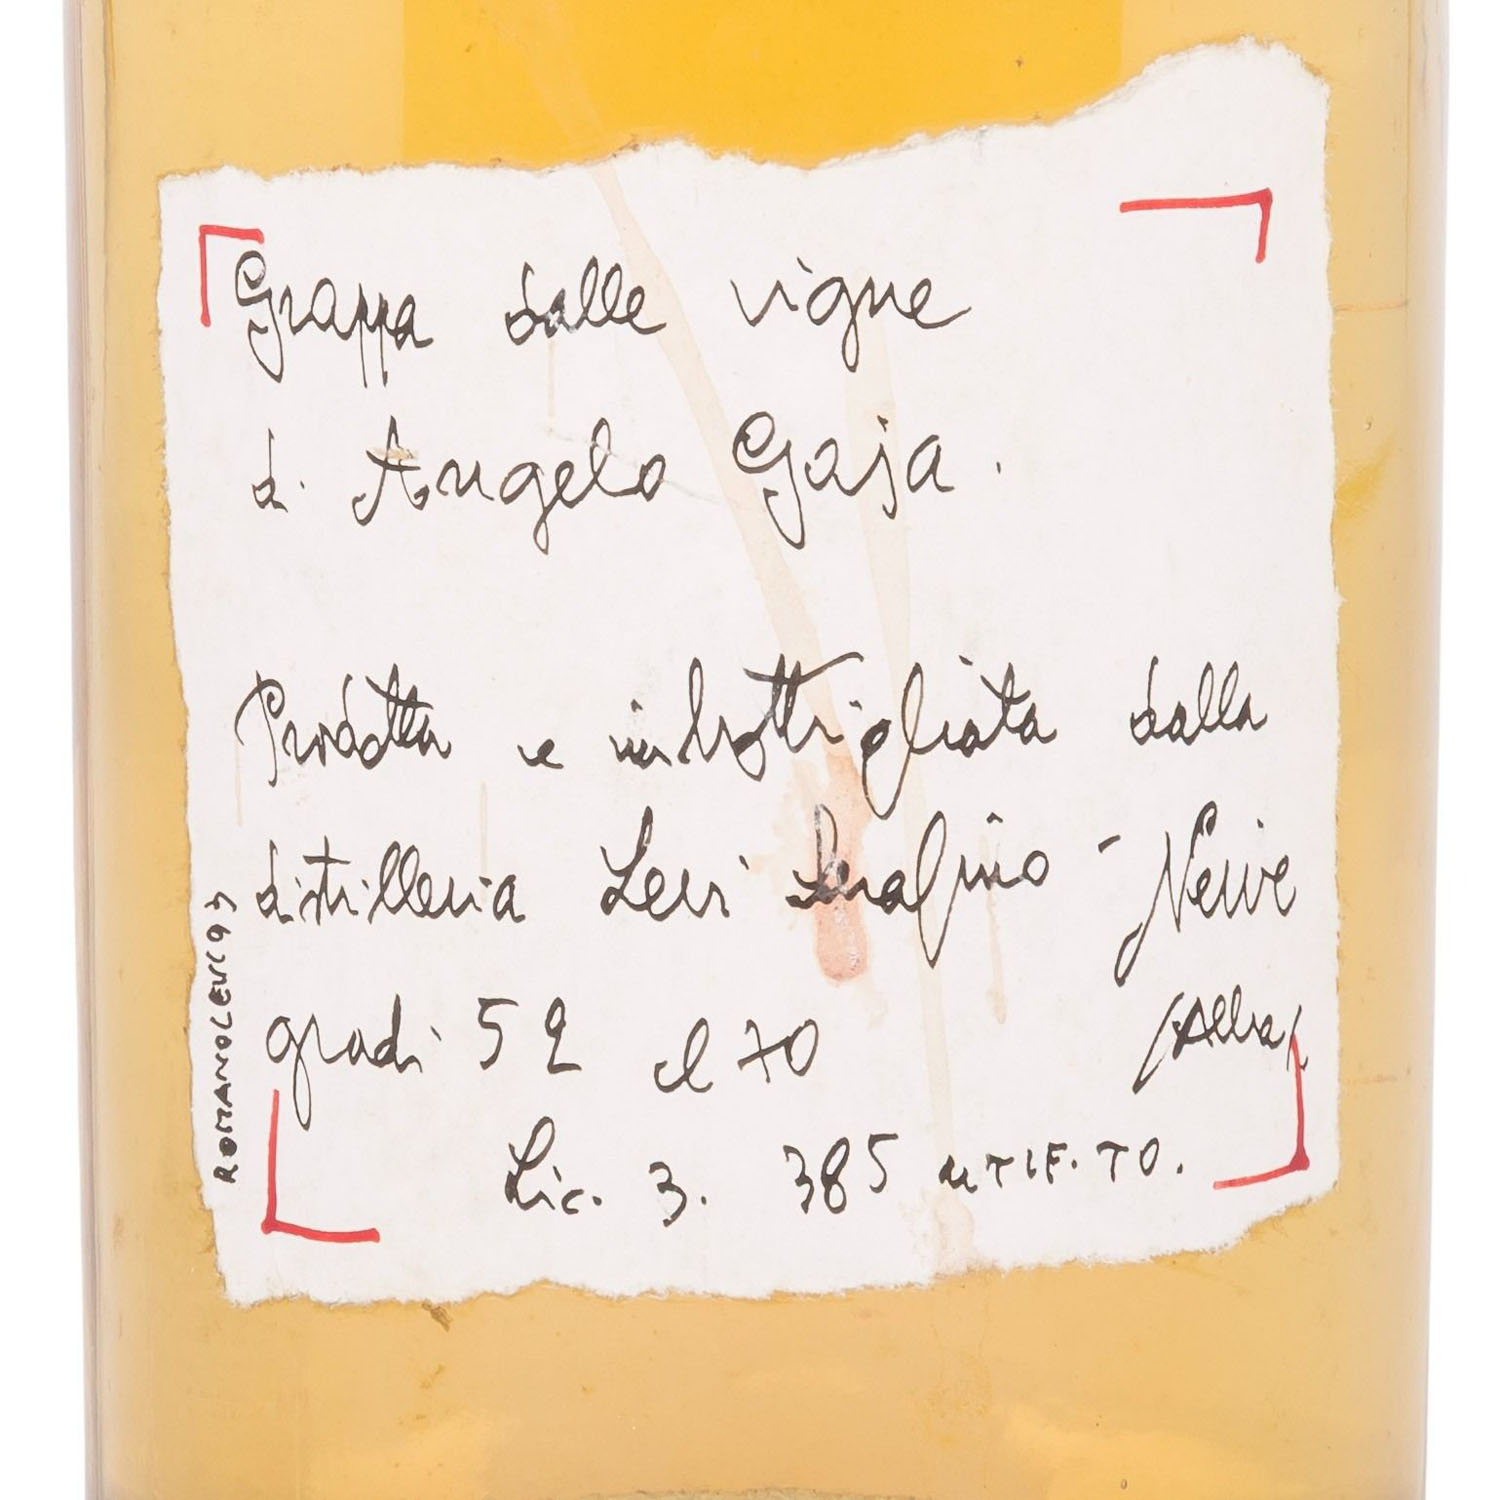 Grappa dalle vigne
di Angelo Gaja.
Prodotta e imbottigliata dalla
distilleria Levi Serafino - Neive
(Alba)
gradi 52 cl 70
Lic. 3. 385 UTIF. TO.
ROMANOLEVI 93